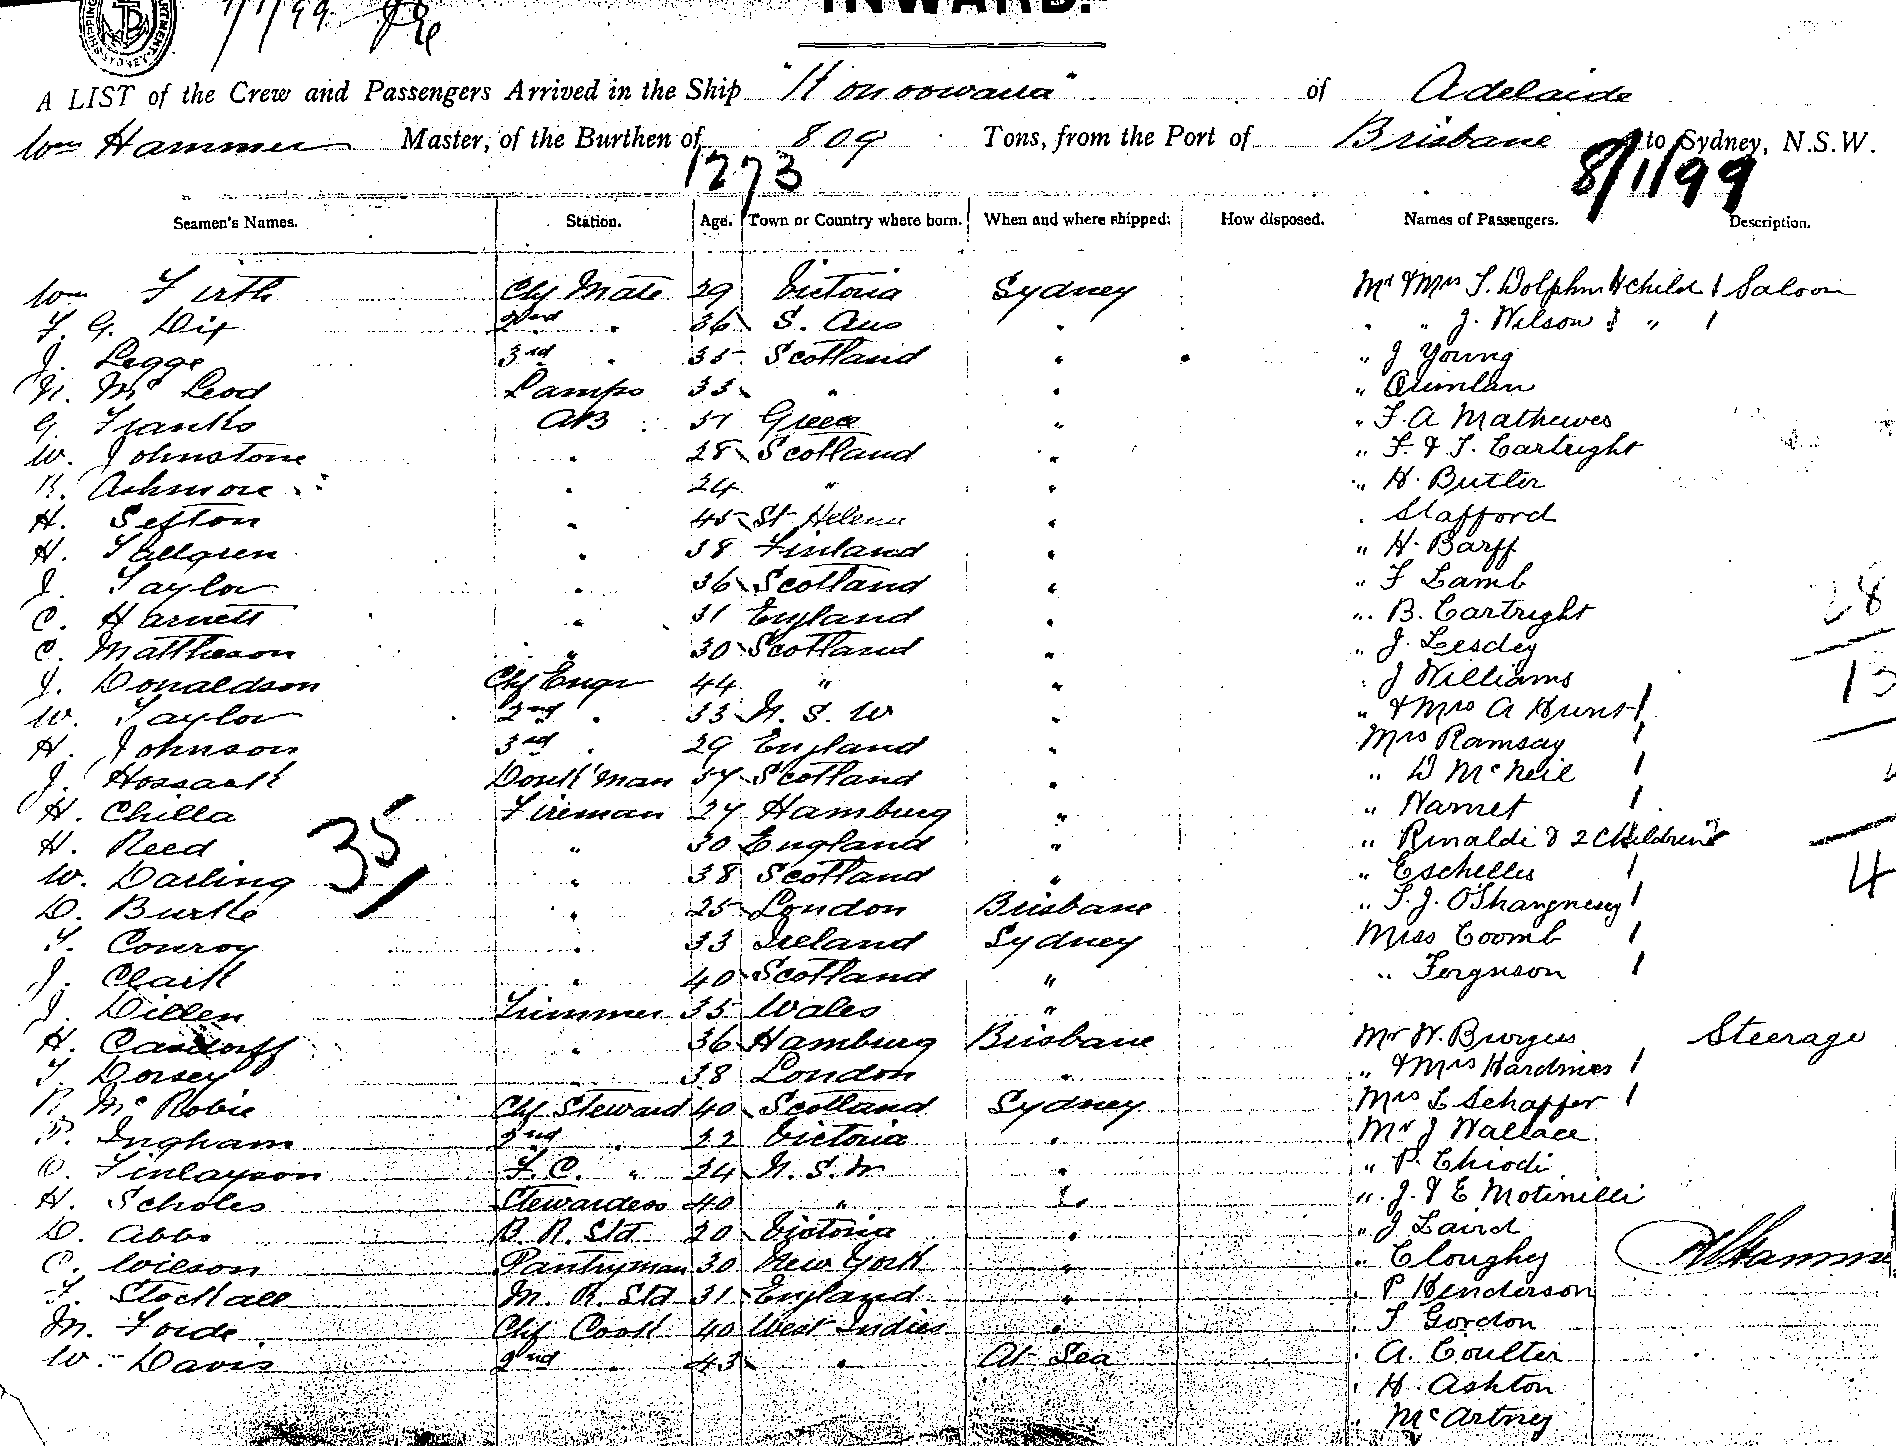 7/1/99
INWARD.
A LIST of the Crew and Passengers Arrived in the Ship "Konoowarra" of Adelaide
Wm Hammer Master, of the Burthen of 809 Tons, from the Port of Brisbane to Sydney, N.S.W.
1273 8/1/99
Seamen's Names. Station. Age. Town or Country where born. When and where shipped: How disposed. Names of Passengers. Description.
Wm Firth Chf Mate 29 Victoria Sydney Mr & Mrs T. Dolphin & child 1 Saloon
F. G. Dix 2nd " 36 S. Aus " " " J. Wilson & " 1
J. Legge 3rd " 35 Scotland " " J Young
N. Mc Leod Lamps 33 " " " Quinlan
G. Franks AB 51 Greece " " F. A Mathewes
W. Johnstone " 28 Scotland " " F. & T. Cartright
R. Ashmore " 24 " " " H. Butler
H. Sefton " 45 St Helena " " Stafford
H. Tallgren " 38 Finland " " H. Barff
J. Taylor " 36 Scotland " " F Lamb
C. Harnett " 31 England " " B. Cartright 28
C. Mattheson " 30 Scotland " " J. Lesdey
J. Donaldson Chf Engr 44 " " " J Williams 13
W. Taylor 2nd " 33 N. S. W " " & Mrs A Hunt 1
H. Johnson 3rd " 29 England " Mrs Ramsay 1
J. Hossack Donk Man 57 Scotland " " D McNeil 1
H. Chilla Fireman 27 Hamburg " " Narnet 1
H. Reed " 30 England " " Rinaldi & 2 Children
W. Darling 35 " 38 Scotland " " Eschelles 1 4
D. Burke " 25 London Brisbane " T. J. O'Shangnesy 1
T. Conroy " 33 Ireland Sydney Miss Coomb 1
J. Clark " 40 Scotland " " Ferguson 1
J. Dillen Trimmer 35 Wales "
H. Casdorff " 36 Hamburg Brisbane Mr W. Burgess Steerage
T. Dorsey " 38 London " " & Mrs Hardines 1
R. Mc Robie Chf Steward 40 Scotland Sydney Mrs L Schaffer 1
P. Ingham 2nd " 32 Victoria " Mr J Wallace
D. Finlayson F. C. " 24 N. S. W " " P. Chiodi
H. Scholes Stewardess 40 " " " J. & E Motinelli
D. Abbs B. R. Std 20 Victoria " " J Laird
C. Wilson Pantryman 30 New York " " Cloughy WHammer
F. Stockall M. R. Std 31 England " " P Henderson
M. Forde Chf Cook 40 West Indies " " F Gordon
W. Davis 2nd " 43 " At Sea " A. Coulter
" H. Ashton
" McArtney